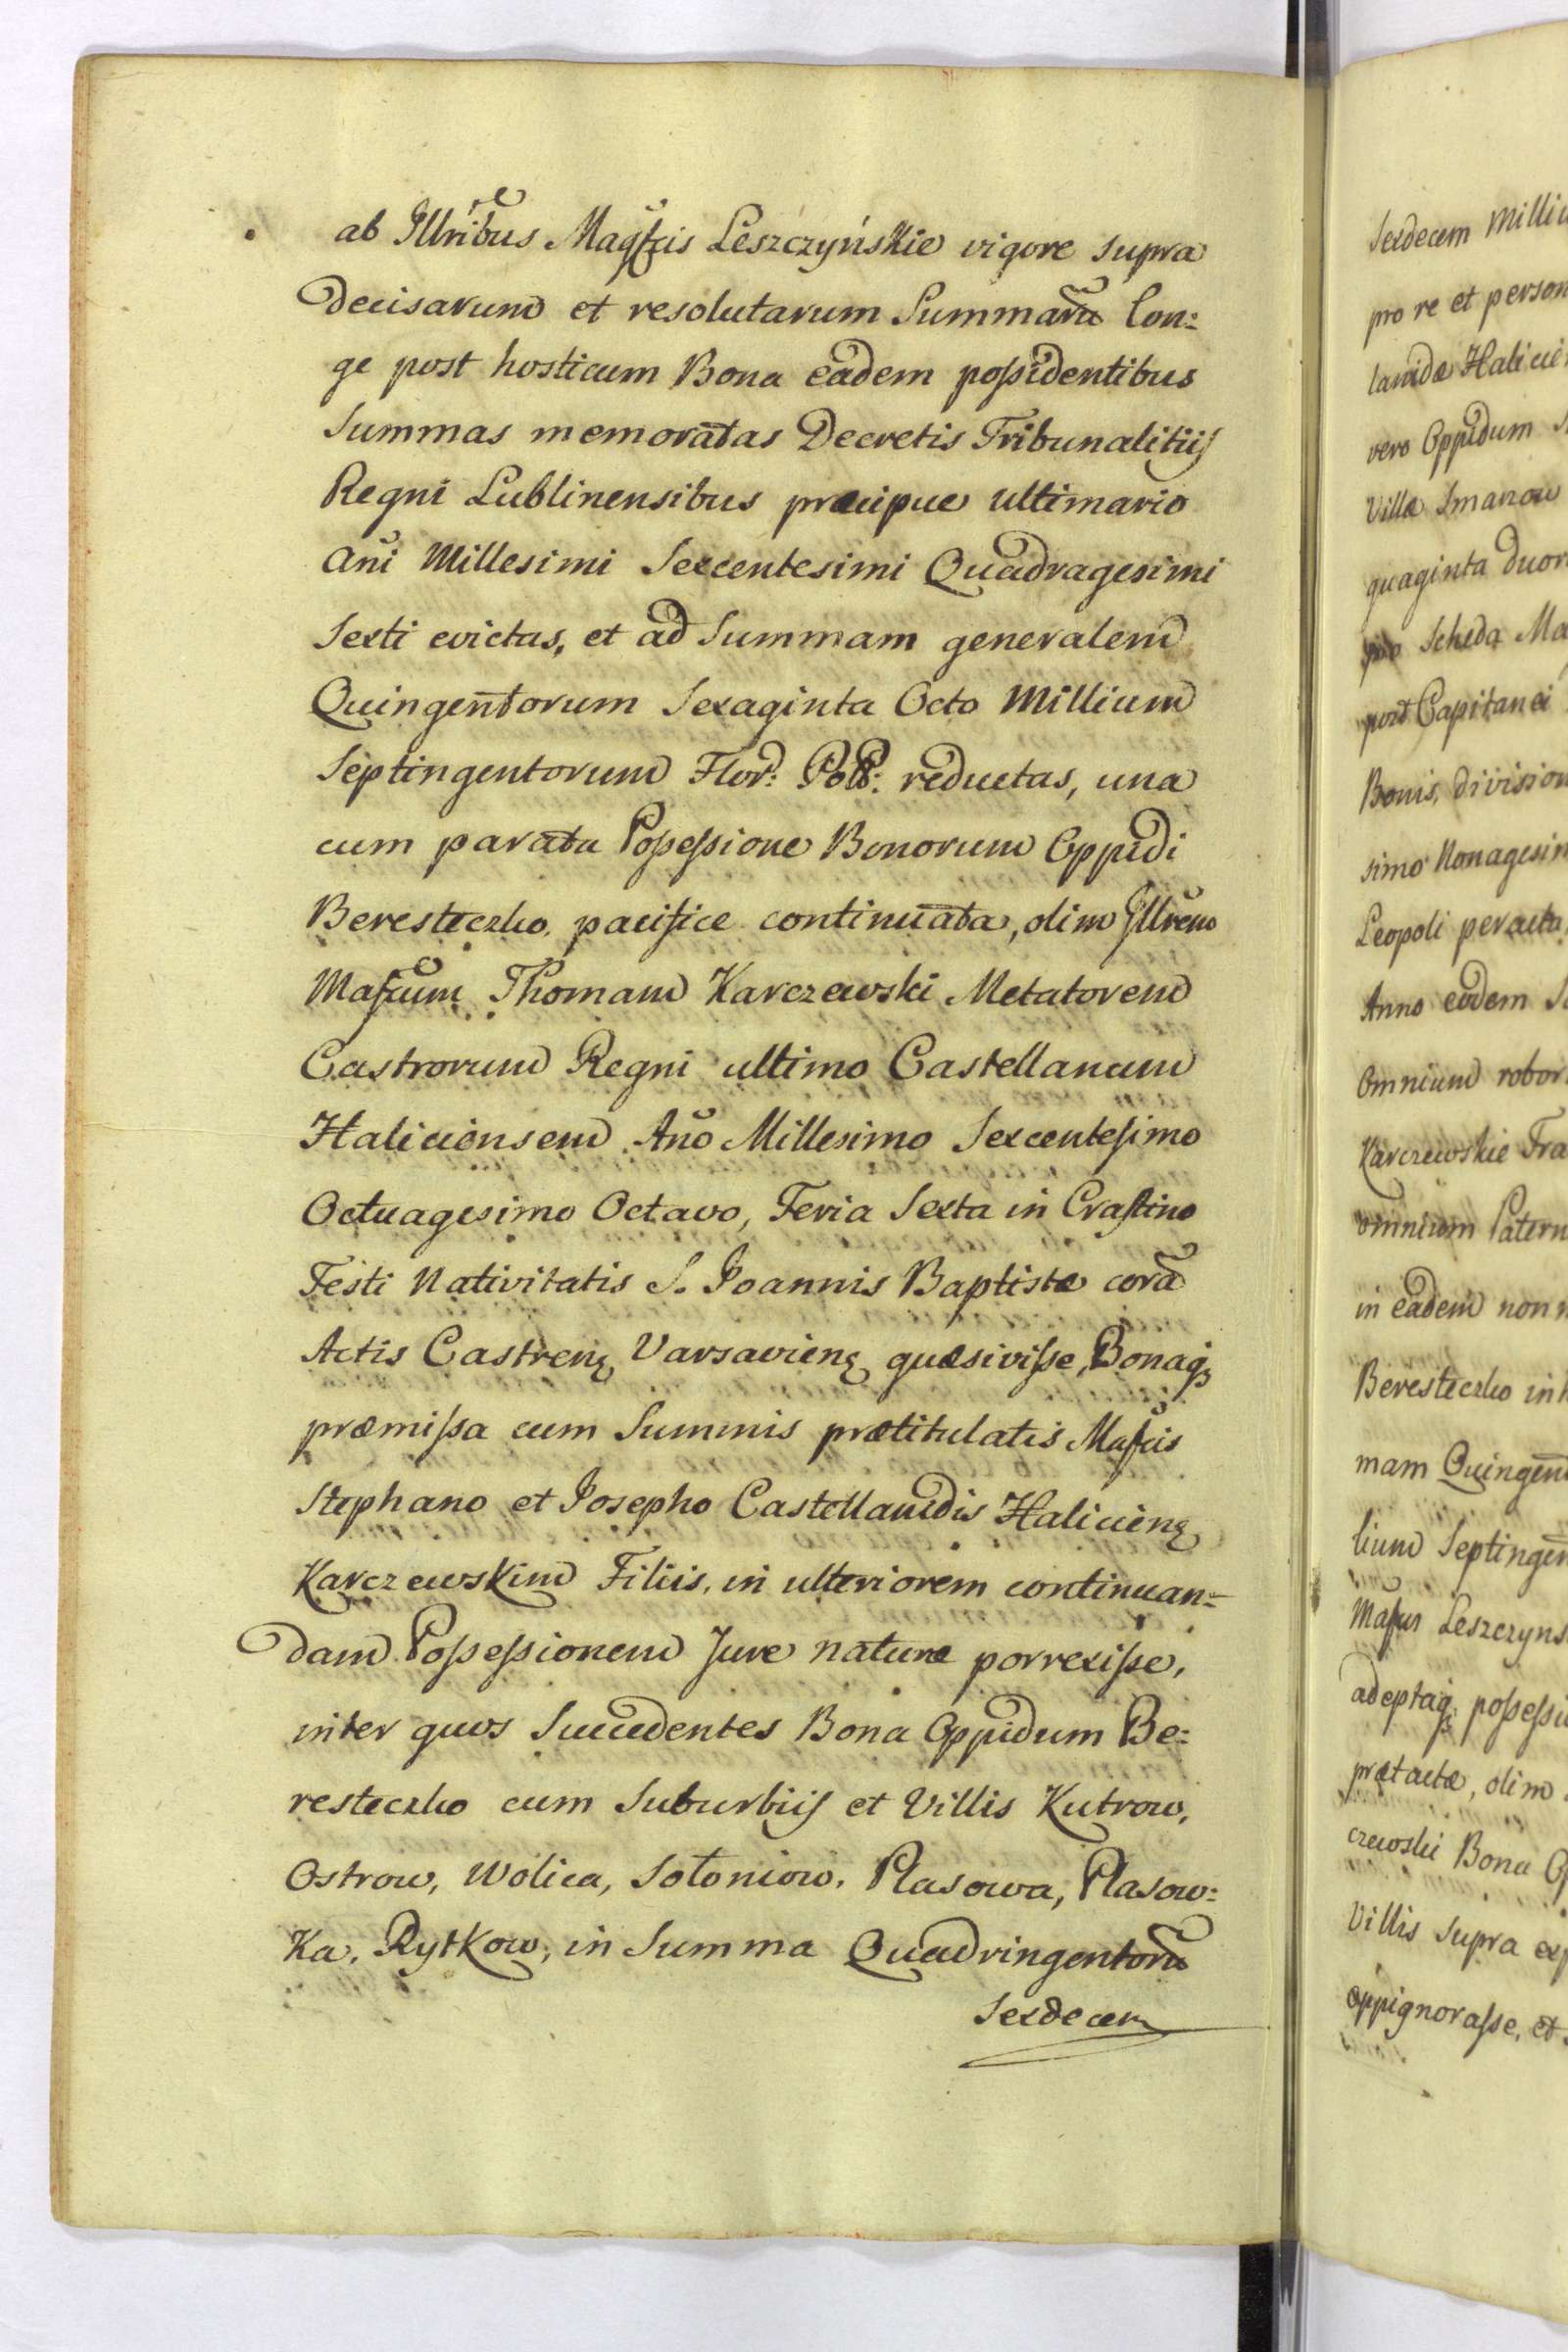 ab Illribus Magfcis Leszczyńskie vigore supra
decisarum et resolutarum Summarũ lon:
ge post hosticum Bona eadem possidentibus
Summas memoratas Decretis Tribunalitiis
Regni Lublinensibus præcipue ultimario
Añi Millesimi Sexcentesimi Quadragesimi
Sexti evictas, et ad Summam generalem
Quingentorum Sexaginta Octo Millium
Septingentorum Flor: Poll: reductas, una
cum parata Possessione Bonorum Oppidi
Beresteczko pacifice continuata, olim Illrem
Mafcum Thomam Karczewski Metatorem
Castrorum Regni ultimo Castellanum
Haliciensem Año Millesimo Sexcentesimo
Octuagesimo Octavo, Feria Sexta in Crastino
Festi Nativitatis S. Joannis Baptistæ corã
Actis Castrenq Varsavienq quæsivisse, Bonaq3
præmissa cum Summis prætitulatis Mafcis
Stephano et Josepho Castellanidis Halicienq
Karczewskim Filiis, in ulteriorem continuan=
dam Possessionem Jure naturæ porrexisse,
inter quos Succedentes Bona Oppidum Be:
resteczko cum Suburbiis et Villis Kutrow,
Ostrow, Wolica, Sołoniow, Plasowa, Plasow:
Ka, Rytkow, in Summa Quadringentorũ
Sexdecem
Sexdecem Milliu
pro re et person
lanidæ Halicie
vero Oppidum
Villæ Smarzow
quaginta duor
Scheda Ma
post Capitanei
Bonis, division
simo Nonagesim
Leopoli peracta
Anno eodem
omnium robor
Karczewskie Fra
omnium Patern
in eadem non
Beresteczko in
mam Quingen
lium Septingen
Mafcus Leszczyns
adeptaq3 possessi
prætactæ, olim
czewski Bona O
Villis supra ex
oppignorasse, et